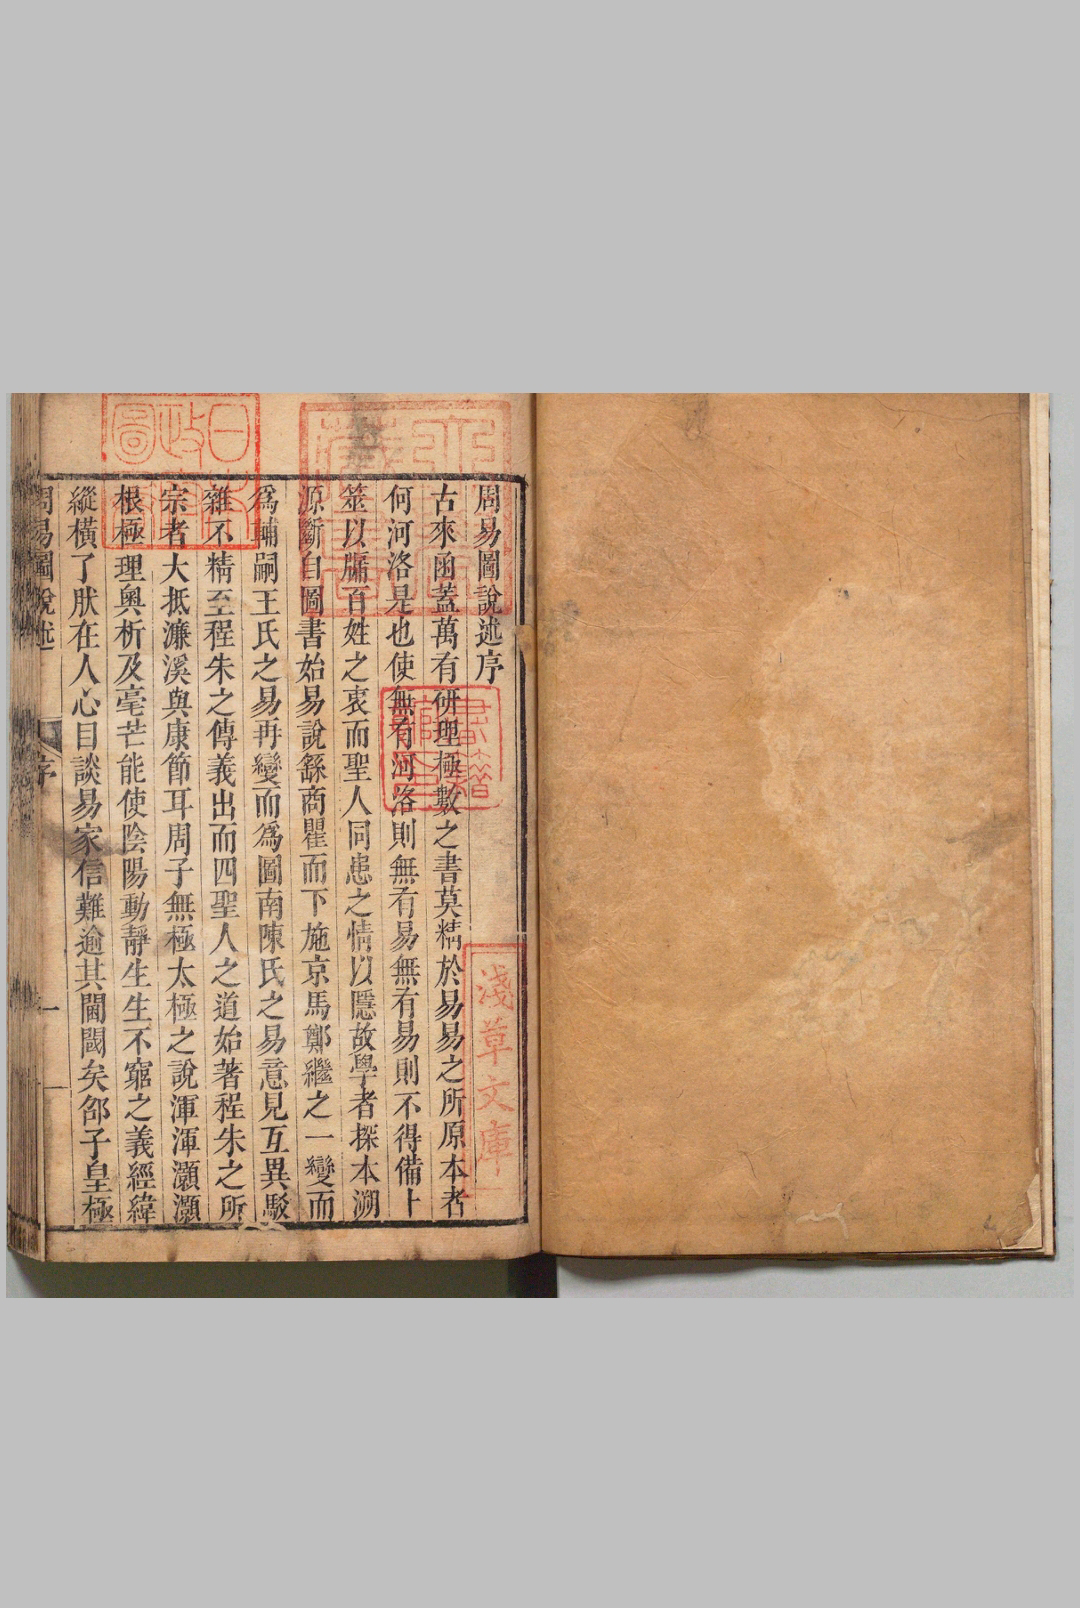 周易圖說述序
古來函蓋萬有研理極數之書莫精於易易之所原本者
何河洛是也使無有河洛則無有易無有易則不得備卜
筮以牖百姓之衷而聖人同患之情以隱故學者探本溯
源斷自圖書始易說繇商瞿而下施京馬鄭繼之一變而
爲輔嗣王氏之易再變而爲圖南陳氏之易意見互異駁
雜不精至程朱之傳義出而四聖人之道始著程朱之所
宗者大抵濂溪與康節耳周子無極太極之說渾渾灝灝
根極理奧析及毫芒能使陰陽動靜生生不窮之義經緯
縱橫了肰在人心目談易家信難逾其閫閾矣邵子皇極
周易圖說述
序
一
淺草文庫
書籍館印
日本政圖